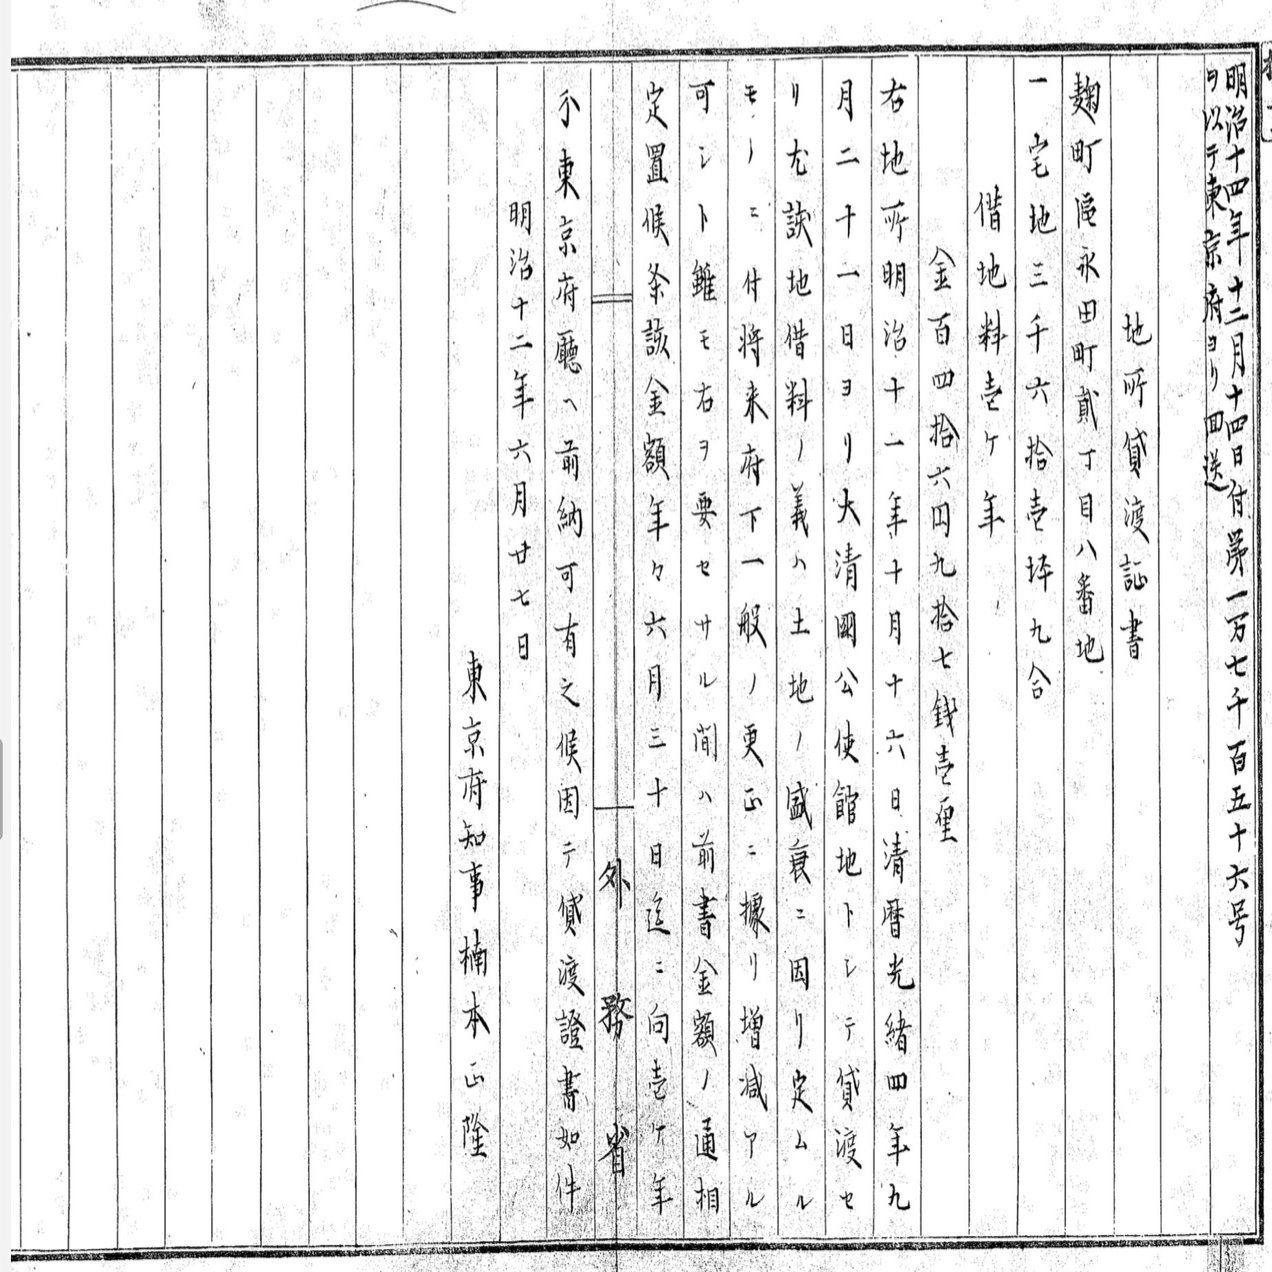 明治十四年十二月十四日付第一万七千百五十六号
ヲ以テ東京府ヨリ回送
地所貸渡証書
麹町区永田町貳丁目八番地
一宅地三千六拾壱坪九合
借地料壱ケ年
金百四拾六円九拾七銭壱厘
右地所明治十一年十月十六日清暦光緒四年九
月二十一日ヨリ大清國公使館地トシテ貸渡セ
リ尤該地借料ノ義ハ土地ノ盛衰ニ因リ定ムル
モノニ付将来府下一般ノ更正ニ據リ増減アル
可シト雖モ右ヲ要セサル間ハ前書金額ノ通相
定置候条該金額年々六月三十日迄ニ向壱ケ年
外務省
分東京府廳ヘ前納可有之候因テ貸渡證書如件
明治十二年六月廿七日
東京府知事楠本正隆